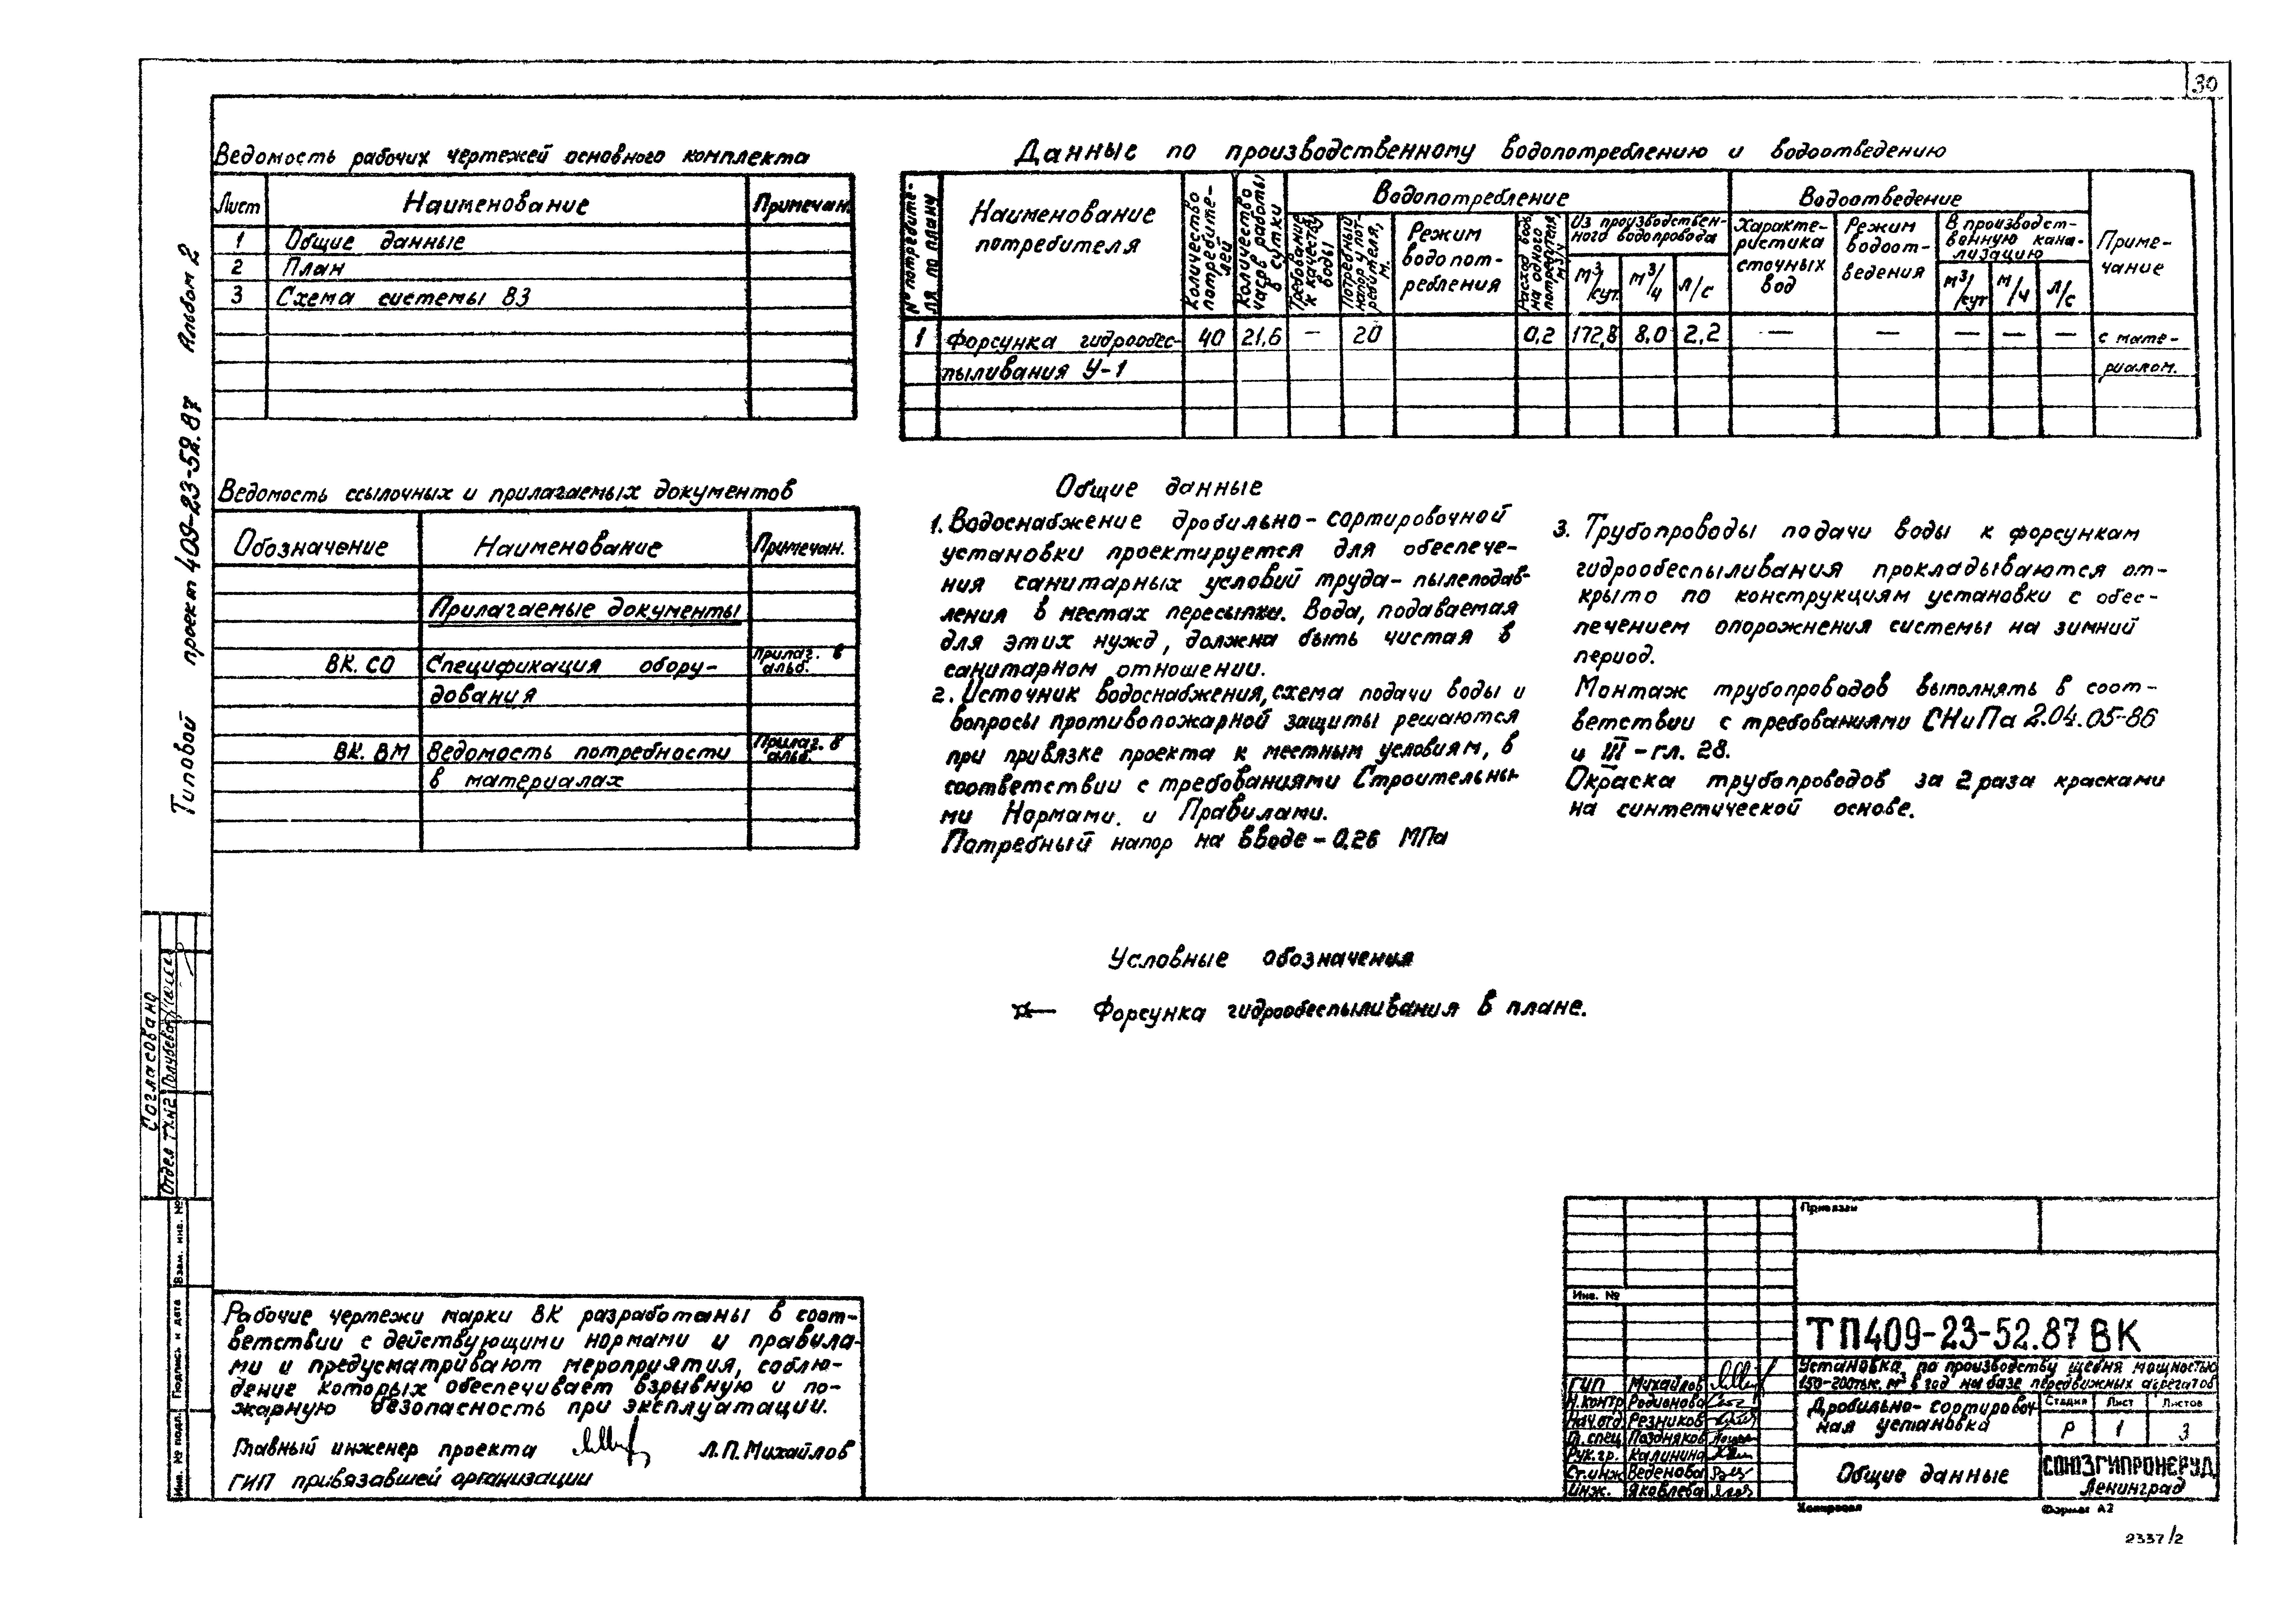 30
Ведомость рабочих чертежей основного комплекта
Лист Наименование Примечан.
1 Общие данные
2 План
3 Схема системы В3
Данные по производственному водопотреблению и водоотведению
№ потребите-
ля по плану
Наименование
потребителя
Количество
потребите-
лей
Количество
часов работы
в сутки
Водопотребление
Требование
к качеству
воды
Потребный
напор у пот-
ребителя,
м.
Режим
водопот-
ребления
Расход воды
на одного
потребителя,
м3/ч
Из производствен-
ного водопровода
м³/сут. м³/ч л/с
Водоотведение
Характе-
ристика
сточных
вод
Режим
водоот-
ведения
В производст-
венную кана-
лизацию
м³/сут м/ч л/с
Приме-
чание
1 Форсунка гидрообес- 40 21,6 — 20 0,2 172,8 8,0 2,2 — — — — — с мате-
пыливания У-1 риалом.
Ведомость ссылочных и прилагаемых документов
Обозначение Наименование Примечан.
Прилагаемые документы
ВК. СО Спецификация обору-
дования
Прилаг. в
альб.
ВК. ВМ Ведомость потребности
в материалах
Прилаг. в
альб.
Общие данные
1. Водоснабжение дробильно-сортировочной
установки проектируется для обеспече-
ния санитарных условий труда- пылеподав-
ления в местах пересыпки. Вода, подаваемая
для этих нужд, должна быть чистая в
санитарном отношении.
2. Источник водоснабжения, схема подачи воды и
вопросы противопожарной защиты решаются
при привязке проекта к местным условиям, в
соответствии с требованиями Строительны-
ми Нормами. и Правилами.
Потребный напор на вводе - 0.26 МПа
3. Трубопроводы подачи воды к форсункам
гидрообеспыливания прокладываются от-
крыто по конструкциям установки с обес-
печением опорожнения системы на зимний
период.
Монтаж трубопроводов выполнять в соот-
ветствии с требованиями СНиПа 2.04.05-86
и III - гл. 28.
Окраска трубопроводов за 2 раза красками
на синтетической основе.
Условные обозначения
Форсунка гидрообеспыливания в плане.
Типовой проект 409-23-52.87 Альбом 2
Согласовано
Отдел ТХН2 Голубева
Взам. инв. №
Подпись и дата
Инв. № подл.
Рабочие чертежи марки ВК разработаны в соот-
ветствии с действующими нормами и правила-
ми и предусматривают мероприятия, соблю-
дение которых обеспечивает взрывную и по-
жарную безопасность при эксплуатации.
Главный инженер проекта Л.П.Михайлов
ГИП привязавшей организации
Привязан
Инв. №
ТП409-23-52.87 ВК
Установка по производству щебня мощностью
150-200тыс. м³ в год на базе передвижных агрегатов
ГИП Михайлов
Н.контр Родионова
Нач.отд Резников
Гл. спец Поздняков
Рук.гр. Калинина
Ст.инж Веденова
Инж. Яковлева
Дробильно-сортировоч-
ная установка
Стадия Лист Листов
Р 1 3
Общие данные
СОЮЗГИПРОНЕРУД
Ленинград
Копировал
Формат А2
2337/2